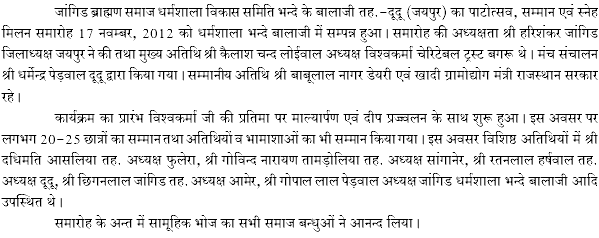 जांगिड ब्राह्मण समाज धर्मशाला विकास समिति भन्दे के बालाजी तह.-दूदू (जयपुर) का पाटोत्सव, सम्मान एवं स्नेह
मिलन समारोह 17 नवम्बर, 2012 को धर्मशाला भन्दे बालाजी में सम्पन्न हुआ। समारोह की अध्यक्षता श्री हरिशंकर जांगिड
जिलाध्यक्ष जयपुर ने की तथा मुख्य अतिथि श्री कैलाश चन्द लोईवाल अध्यक्ष विश्वकर्मा चेरिटेबल ट्रस्ट बगरू थे। मंच संचालन
श्री धर्मेन्द्र पेड़वाल दूदू द्वारा किया गया। सम्मानीय अतिथि श्री बाबूलाल नागर डेयरी एवं खादी ग्रामोद्योग मंत्री राजस्थान सरकार
रहे।
कार्यक्रम का प्रारंभ विश्वकर्मा जी की प्रतिमा पर माल्यार्पण एवं दीप प्रज्ज्वलन के साथ शुरू हुआ। इस अवसर पर
लगभग 20-25 छात्रों का सम्मान तथा अतिथियों व भामाशाओं का भी सम्मान किया गया। इस अवसर विशिष्ठ अतिथियों में श्री
दधिमति आसलिया तह. अध्यक्ष फुलेरा, श्री गोविन्द नारायण तामड़ोलिया तह. अध्यक्ष सांगानेर, श्री रतनलाल हर्षवाल तह.
अध्यक्ष दूदू, श्री छिगनलाल जांगिड तह. अध्यक्ष आमेर, श्री गोपाल लाल पेड़वाल अध्यक्ष जांगिड धर्मशाला भन्दे बालाजी आदि
उपस्थित थे।
समारोह के अन्त में सामूहिक भोज का सभी समाज बन्धुओं ने आनन्द लिया।